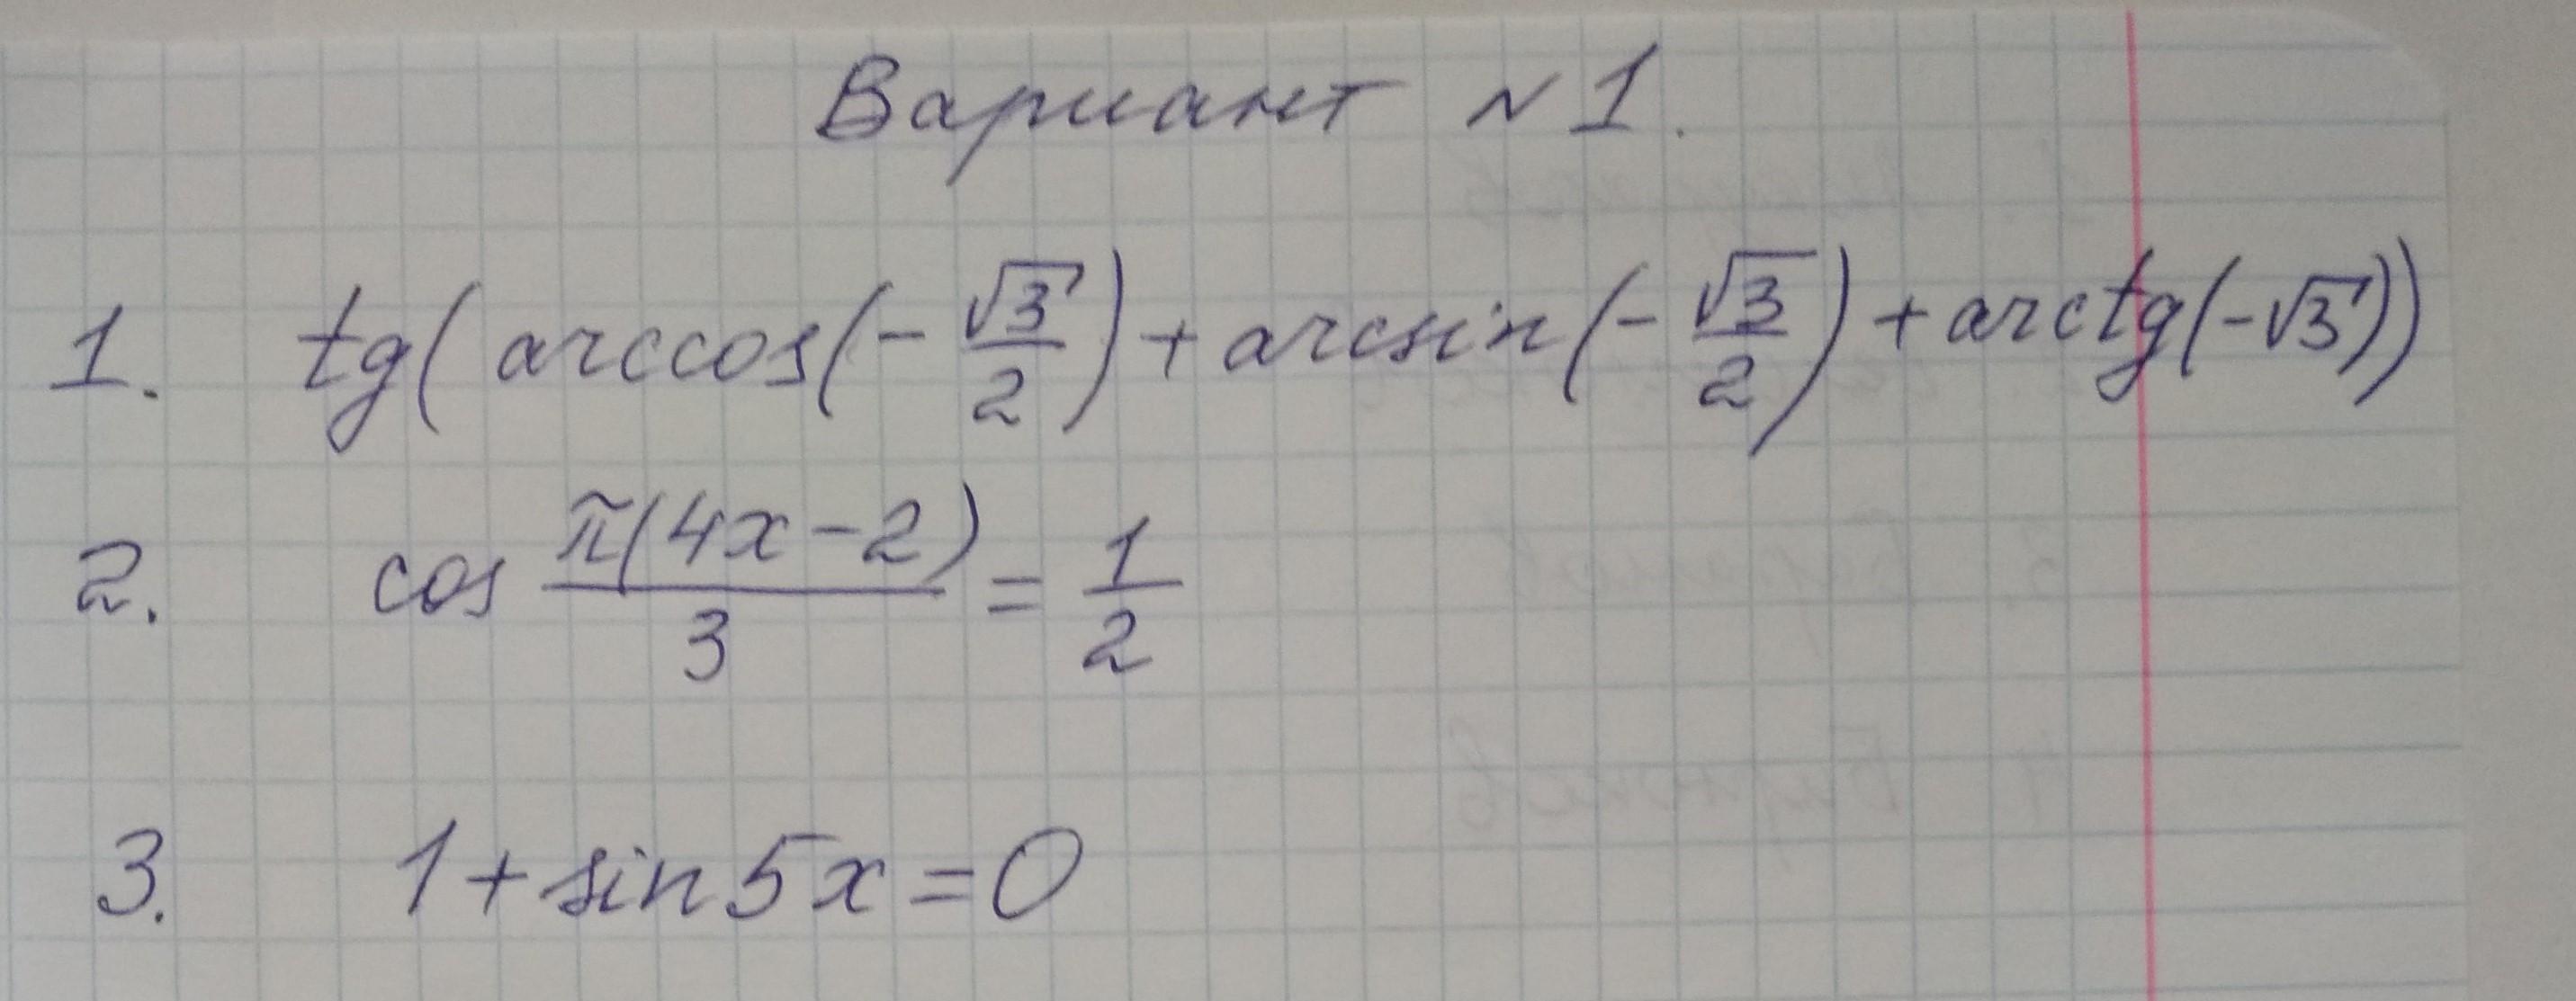 Вариант №1.
1. tg(arccos(-√3/2)+arcsin(-√3/2)+arctg(-√3))
2. cos π(4x-2)/3 = 1/2
3. 1+sin5x=0